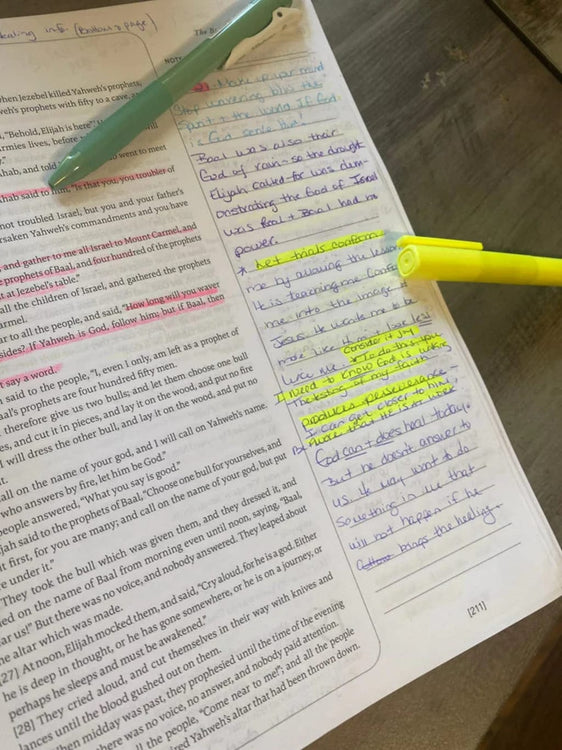 ealing info. (Bottom of page)
The Bi
NOTE
hen Jezebel killed Yahweh's prophets,
weh's prophets with fifty to a cave, a
"Behold, Elijah is here"
Armies lives, before
y."
hab, and told
went to meet
hab said to him, "Is that you, you troubler of
not troubled Israel, but you and your father's
rsaken Yahweh's commandments and you have
, and gather to me all Israel to Mount Carmel, and
e prophets of Baal, and four hundred of the prophets
t at Jezebel's table."
all the children of Israel, and gathered the prophets
armel.
ar to all the people, and said, "How long will you waver
sides? If Yahweh is God, follow him; but if Baal, then
t say a word.
said to the people, "I, even I only, am left as a prophet of
aal's prophets are four hundred fifty men.
therefore give us two bulls; and let them choose one bull
es, and cut it in pieces, and lay it on the wood, and put no fire
I will dress the other bull, and lay it on the wood, and put no
t.
all on the name of your god, and I will call on Yahweh's name.
who answers by fire, let him be God."
eople answered, "What you say is good."
jah said to the prophets of Baal, "Choose one bull for yourselves, and
it first, for you are many; and call on the name of your god, but put
e under it."
They took the bull which was given them, and they dressed it, and
ed on the name of Baal from morning even until noon, saying, "Baal,
ar us!" But there was no voice, and nobody answered. They leaped about
he altar which was made.
[27] At noon, Elijah mocked them, and said, "Cry aloud, for he is a god. Either
he is deep in thought, or he has gone somewhere, or he is on a journey, or
perhaps he sleeps and must be awakened."
[28] They cried aloud, and cut themselves in their way with knives and
lances until the blood gushed out on them.
hen midday was past, they prophesied until the time of the evening
here was no voice, no answer, and nobody paid attention.
ll the people, "Come near to me!"; and all the people
red Yahweh's altar that had been thrown down.
21 Make up your mind
Stop wavering b/w the
Spirit + the world. If God
is God serve Him!
Baal was also their
God of rain - so the drought
Elijah called for was dem-
onstrating the God of Israel
was Real + Baal had no
power.
* Let trials conform
me by avoiding the lesson
It is teaching me. Conform
me into the image of
Jesus. He wants me to be
more like Him + love less
like me.
Consider it joy
* To do this you
I need to know God is working
The testing of my faith
produces perseverance -
I can get closer to him
know that He is at work
God can + does heal today.
But he doesn't answer to
us. He may want to do
something in us that
will not happen if he
brings the healing.
[211]